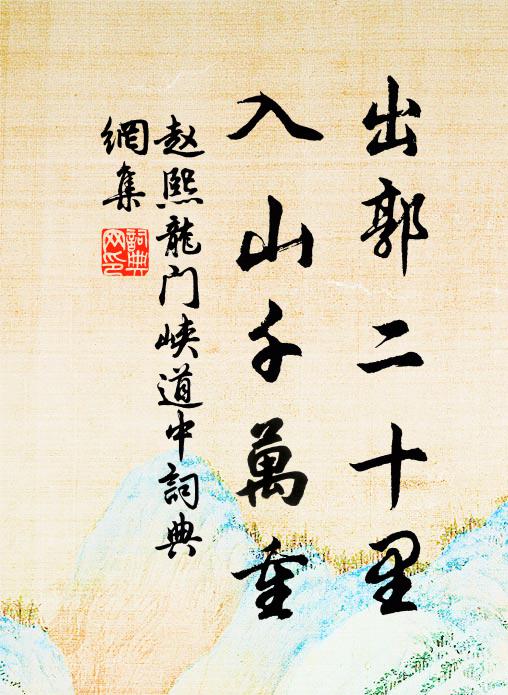 出郭二十里
入山千萬重
赵熙龍门峡道中詞典
網集
詞典
网印